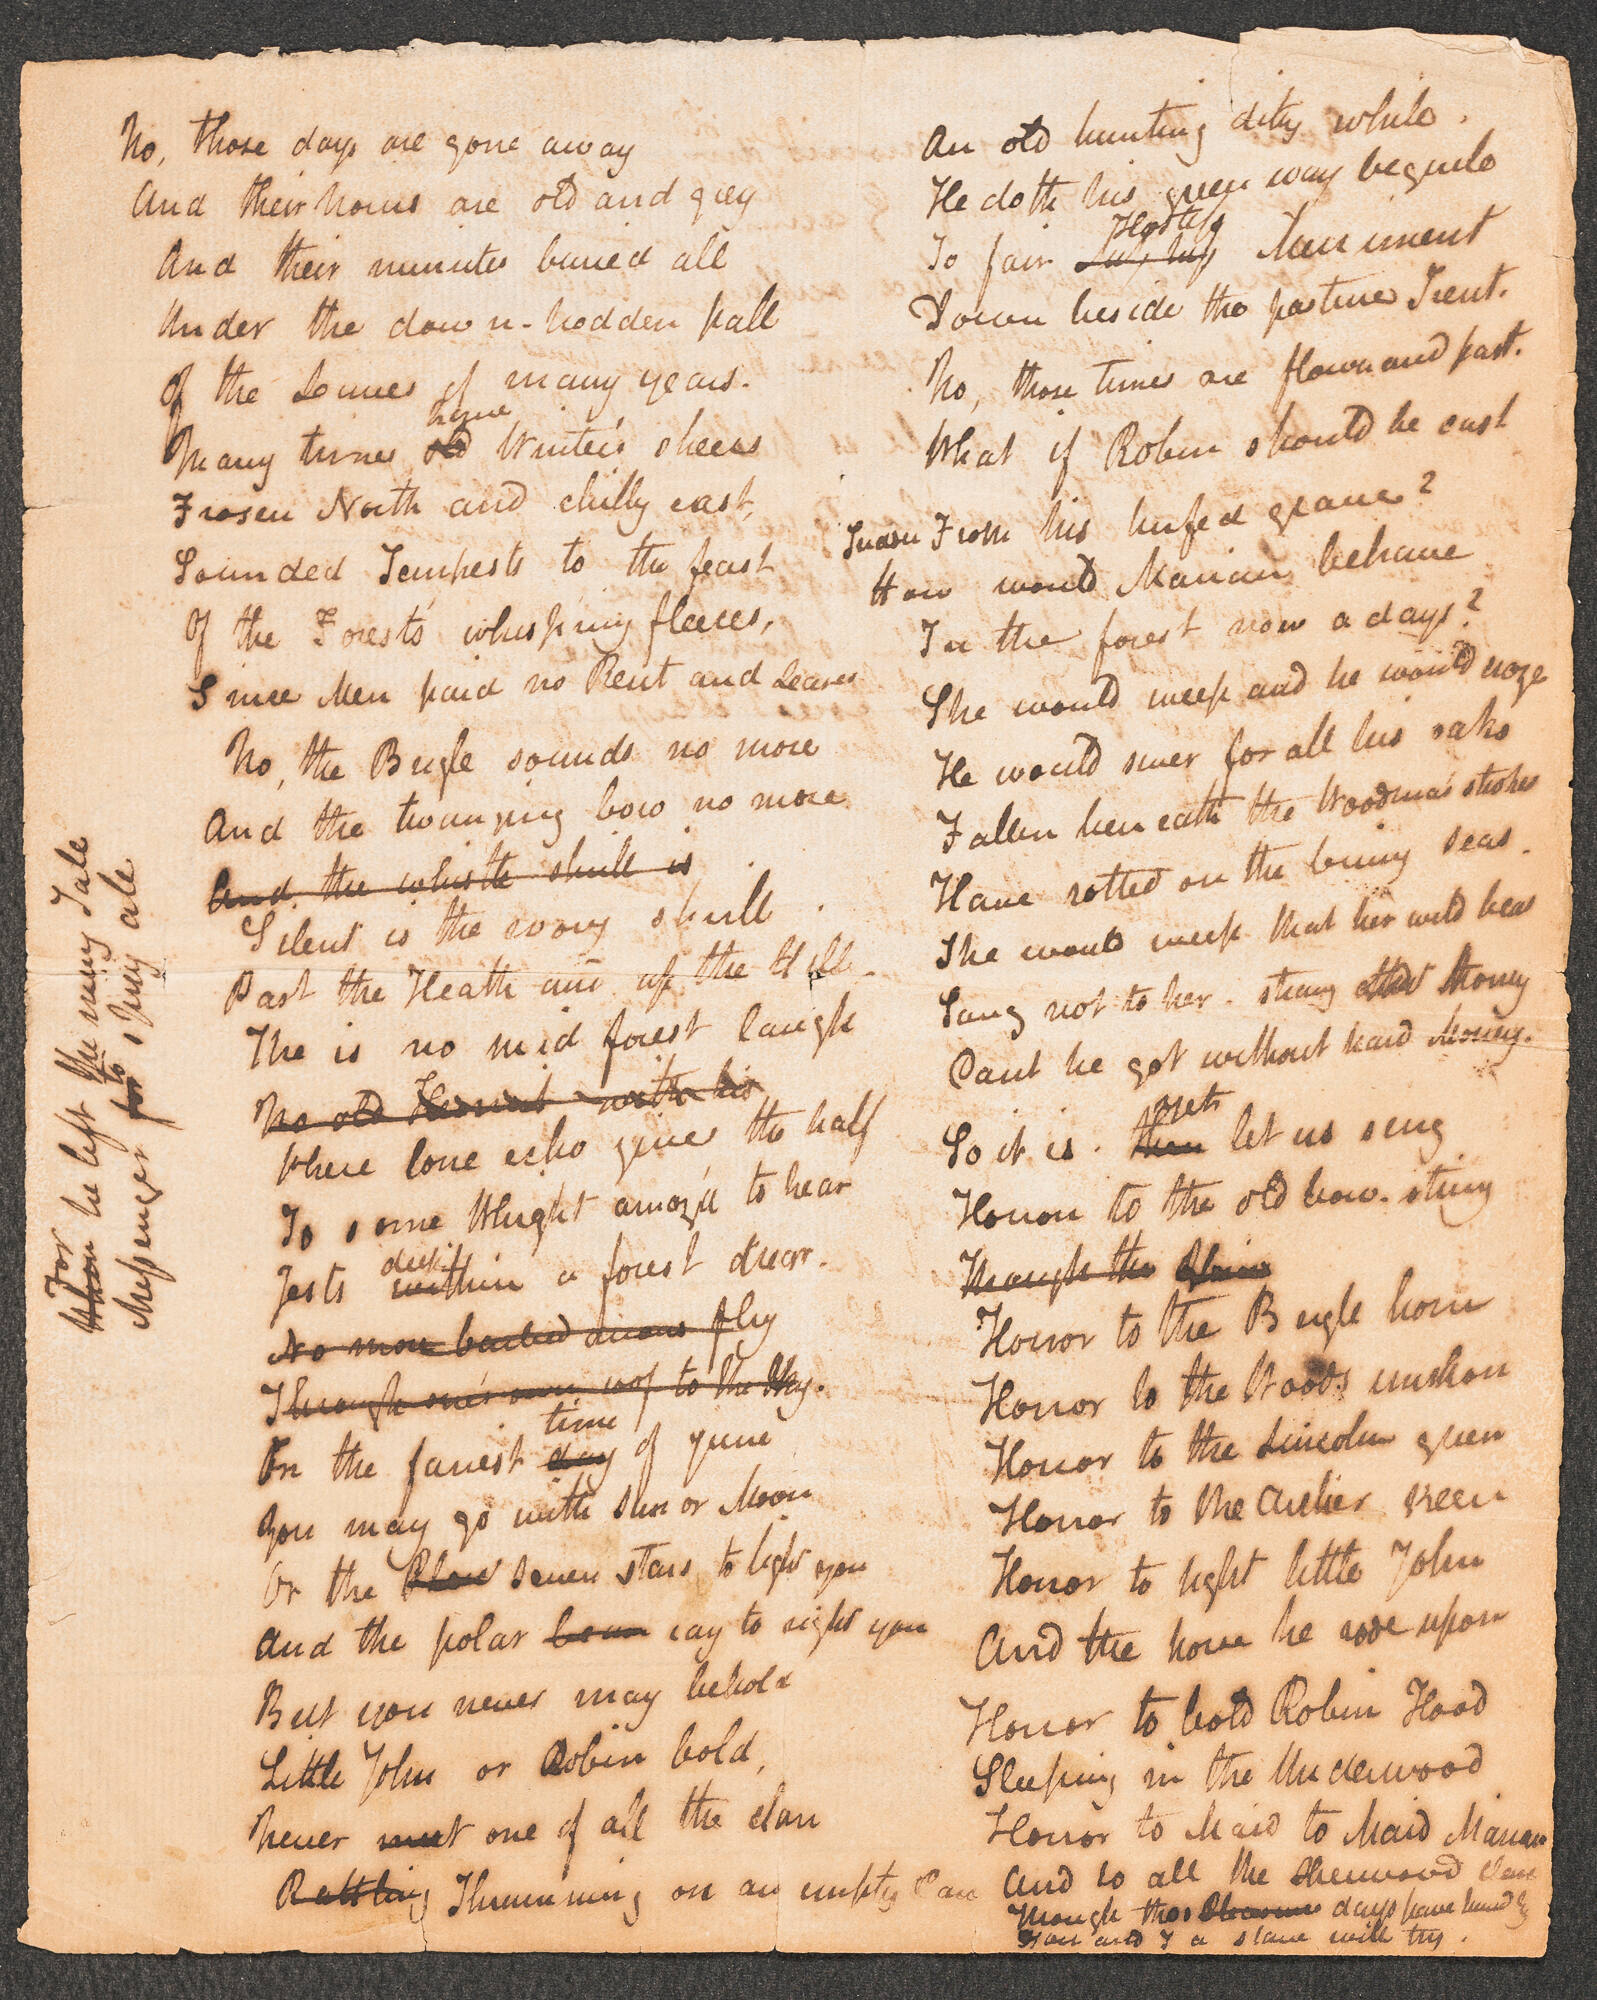 No, those days are gone away
And their hours are old and grey
And their minutes buried all
Under the down-trodden pall
Of the Leaves of many years.
have
Many times old Winter's shears
Frozen North and chilly east,
Sounded Tempests to the feast
Of the Forests whisping fleeces,
Since Men paid no Rent and Leases
No, the Bugle sounds no more
And the twanging bow no more
And the whistle shrill is
Silent is the ivory shrill
Past the Heath and up the Hill.
The is no mid forest laugh
No old Hermit with his
Where lone echo gives the half
To some Wright amaz'd to hear
deep
Jests within a forest drear.
No more barbed arrows fly
Through one's roof to the sky.
time
On the fairest day of June
You may go with sun or Moon
Or the seven stars to light you
And the polar beam ray to right you
But you never may behold
Little John or Robin bold,
Never meet one of all the clan
Rattling Thrumming on an empty Can
An old hunting ditty while
He doth his green way beguile
Hostess
To fair Merriment
Down beside the pasture Trent.
No, those times are flown and past.
What if Robin should be cast
Sudden From his turfed grave?
How would Marian behave
In the forest now a days?
She would weep and he would craze
He would swer for all his oaks
Fallen beneath the Woodman's strokes
Have rotted on the briny seas.
She would weep that her wild bees
Sang not to her. strang that Honey
Cant be got without hard Money.
yet
So it is. then let us sing
Honour to the old bow-string
Through the
Honor to the Bugle horn
Honor to the Woods unshorn
Honor to the Lincoln green
Honor to the Archer keen
Honor to tight little John
And the horse he rode upon
Honor to bold Robin Hood
Sleeping in the Underwood
Honor to Maid to Maid Marian
And to all the Sherwood clan
Though thos days have hurried by
You and I a stave will try.
For
When he left the merry Tale
to
Messenger for spicy ale